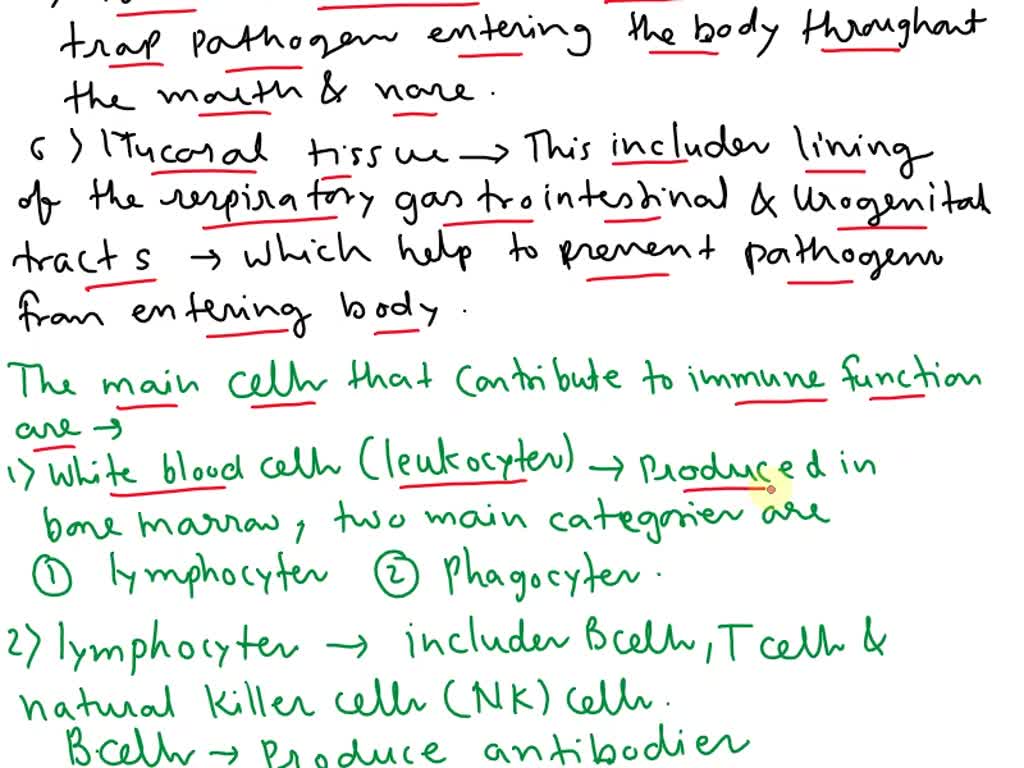 trap pathogen entering the body throughout
the mouth & nose.
6) Mucosal tissue → This includes lining
of the respiratory gastrointestinal & Urogenital
tracts → which help to prevent pathogens
from entering body.
The main cells that contribute to immune function
are →
1) White blood cells (leukocytes) → Produced in
bone marrow, two main categories are
① lymphocytes ② Phagocytes.
2) lymphocytes → includes B cells, T cells &
natural killer cells (NK) cells.
B.cells → Produce antibodies